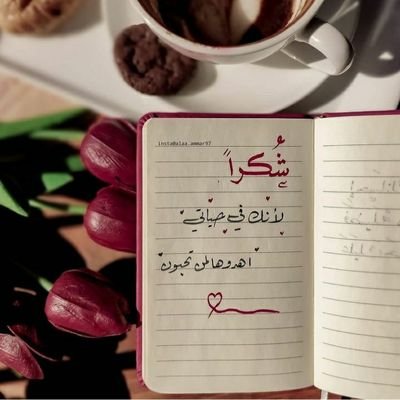 insta@alaa.ammar97
شُكراً
لأنك في حياتي
اهدوها لمن تحبون